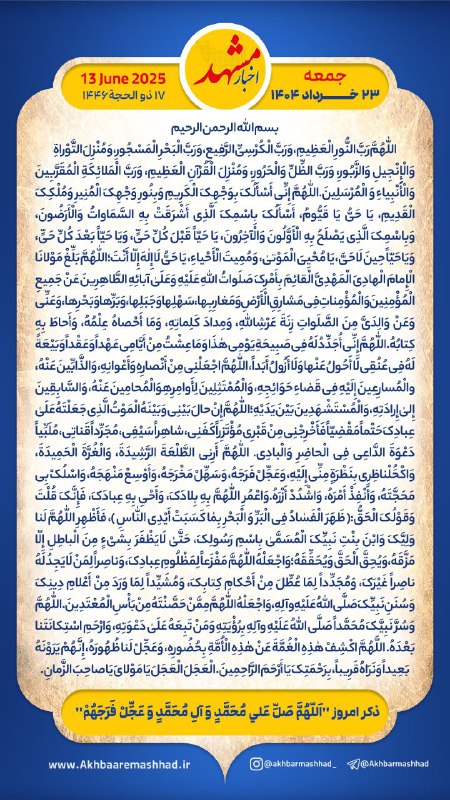 اخبار مشهد
جمعه
۲۳ خـــرداد ۱۴۰۴
13 June 2025
۱۷ ذو الحجة ۱۴۴۶
بسم الله الرحمن الرحیم
اَللّهُمَّ رَبَّ النُّورِ الْعَظِیمِ، وَرَبَّ الْکُرْسِیِّ الرَّفِیعِ، وَرَبَّ الْبَحْرِ الْمَسْجُورِ، وَمُنْزِلَ التَّوْراةِ
وَالْإِنْجِیلِ وَالزَّبُورِ، وَرَبَّ الظِّلِّ وَالْحَرُورِ، وَمُنْزِلَ الْقُرْآنِ الْعَظِیمِ، وَرَبَّ الْمَلائِکَةِ الْمُقَرَّبِینَ
وَالْأَنْبِیاءِ وَالْمُرْسَلِینَ. اللّٰهُمَّ إِنِّی أَسْأَلُکَ بِوَجْهِکَ الْکَرِیمِ، وَبِنُورِ وَجْهِکَ الْمُنِیرِ، وَمُلْکِکَ
الْقَدِیمِ، یَا حَیُّ یَا قَیُّومُ، أَسْأَلُکَ بِاسْمِکَ الَّذِی أَشْرَقَتْ بِهِ السَّمَاوَاتُ وَالْأَرَضُونَ،
وَبِاسْمِکَ الَّذِی یَصْلَحُ بِهِ الْأَوَّلُونَ وَالْآخِرُونَ، یَا حَیّاً قَبْلَ کُلِّ حَیٍّ، وَیَا حَیّاً بَعْدَ کُلِّ حَیٍّ،
وَیَا حَیّاً حِینَ لَاحَیَّ، یَا مُحْیِیَ الْمَوْتیٰ، وَمُمِیتَ الْأَحْیاءِ، یَا حَیُّ لَاإِلٰهَ إِلّا أَنْتَ؛ اللّٰهُمَّ بَلِّغْ مَوْلانَا
الْإِمامَ الْهادِیَ الْمَهْدِیَّ الْقائِمَ بِأَمْرِکَ صَلَواتُ اللّٰهِ عَلَیْهِ وَعَلَیٰ آبائِهِ الطَّاهِرِینَ عَنْ جَمِیعِ
الْمُؤْمِنِینَ وَالْمُؤْمِناتِ فِی مَشارِقِ الْأَرْضِ وَمَغارِبِها، سَهْلِها وَجَبَلِها، وَبَرِّها وَبَحْرِها، وَعَنِّی
وَعَنْ وَالِدَیَّ مِنَ الصَّلَواتِ زِنَةَ عَرْشِ اللّٰهِ، وَمِدادَ کَلِماتِهِ، وَمَا أَحْصاهُ عِلْمُهُ، وَأَحاطَ بِهِ
کِتابُهُ. اللّٰهُمَّ إِنِّی أُجَدِّدُ لَهُ فِی صَبِیحَةِ یَوْمِی هٰذا وَمَا عِشْتُ مِنْ أَیَّامِی عَهْداً وَعَقْداً وَبَیْعَةً
لَهُ فِی عُنُقِی لَا أَحُولُ عَنْها وَلَا أَزُولُ أَبَداً. اللّٰهُمَّ اجْعَلْنِی مِنْ أَنْصارِهِ وَأَعْوانِهِ، وَالذَّابِّینَ عَنْهُ،
وَالْمُسارِعِینَ إِلَیْهِ فِی قَضاءِ حَوَائِجِهِ، وَالْمُمْتَثِلِینَ لِأَوامِرِهِ وَالْمُحامِینَ عَنْهُ، وَالسَّابِقِینَ
إِلیٰ إِرادَتِهِ، وَالْمُسْتَشْهَدِینَ بَیْنَ یَدَیْهِ؛ اللّٰهُمَّ إِنْ حالَ بَیْنِی وَبَیْنَهُ الْمَوْتُ الَّذِی جَعَلْتَهُ عَلَیٰ
عِبادِکَ حَتْماً مَقْضِیّاً فَأَخْرِجْنِی مِنْ قَبْرِی مُؤْتَزِراً کَفَنِی، شاهِراً سَیْفِی، مُجَرِّداً قَناتِی، مُلَبِّیاً
دَعْوَةَ الدَّاعِی فِی الْحاضِرِ وَالْبادِی. اللّٰهُمَّ أَرِنِی الطَّلْعَةَ الرَّشِیدَةَ، وَالْغُرَّةَ الْحَمِیدَةَ،
وَاکْحُلْ ناظِرِی بِنَظْرَةٍ مِنِّی إِلَیْهِ، وَعَجِّلْ فَرَجَهُ، وَسَهِّلْ مَخْرَجَهُ، وَأَوْسِعْ مَنْهَجَهُ، وَاسْلُکْ بِی
مَحَجَّتَهُ، وَأَنْفِذْ أَمْرَهُ، وَاشْدُدْ أَزْرَهُ. وَاعْمُرِ اللّٰهُمَّ بِهِ بِلادَکَ، وَأَحْیِ بِهِ عِبادَکَ، فَإِنَّکَ قُلْتَ
وَقَوْلُکَ الْحَقُّ: ﴿ظَهَرَ الْفَسٰادُ فِی الْبَرِّ وَ الْبَحْرِ بِمٰا کَسَبَتْ أَیْدِی النّٰاسِ﴾، فَأَظْهِرِ اللّٰهُمَّ لَنا
وَلِیَّکَ وَابْنَ بِنْتِ نَبِیِّکَ الْمُسَمَّیٰ بِاسْمِ رَسُولِکَ، حَتَّیٰ لَا یَظْفَرَ بِشَیْءٍ مِنَ الْباطِلِ إِلّا
مَزَّقَهُ، وَیُحِقَّ الْحَقَّ وَیُحَقِّقَهُ؛ وَاجْعَلْهُ اللّٰهُمَّ مَفْزَعاً لِمَظْلُومِ عِبادِکَ، وَناصِراً لِمَنْ لَا یَجِدُ لَهُ
ناصِراً غَیْرَکَ، وَمُجَدِّداً لِمَا عُطِّلَ مِنْ أَحْکامِ کِتابِکَ، وَمُشَیِّداً لِمَا وَرَدَ مِنْ أَعْلامِ دِینِکَ
وَسُنَنِ نَبِیِّکَ صَلَّی اللّٰهُ عَلَیْهِ وَآلِهِ، وَاجْعَلْهُ اللّٰهُمَّ مِمَّنْ حَصَّنْتَهُ مِنْ بَأْسِ الْمُعْتَدِینَ. اللّٰهُمَّ
وَسُرَّ نَبِیَّکَ مُحَمَّداً صَلَّی اللّٰهُ عَلَیْهِ وَآلِهِ بِرُؤْیَتِهِ وَمَنْ تَبِعَهُ عَلَیٰ دَعْوَتِهِ، وَارْحَمِ اسْتِکانَتَنا
بَعْدَهُ. اللّٰهُمَّ اکْشِفْ هٰذِهِ الْغُمَّةَ عَنْ هٰذِهِ الْأُمَّةِ بِحُضُورِهِ، وَعَجِّلْ لَنا ظُهُورَهُ، إِنَّهُمْ یَرَوْنَهُ
بَعِیداً وَنَرَاهُ قَرِیباً، بِرَحْمَتِکَ یَا أَرْحَمَ الرَّاحِمِینَ. الْعَجَلَ الْعَجَلَ یَا مَوْلایَ یَا صاحِبَ الزَّمانِ.
ذکر امروز "اَللّهُمَّ صَلِّ عَلي مُحَمَّدٍ وَ آلِ مُحَمَّدٍ وَ عَجِّلْ فَرَجَهُمْ"
www.Akhbaaremashhad.ir
@akhbarmashhad_
@Akhbarmashhad